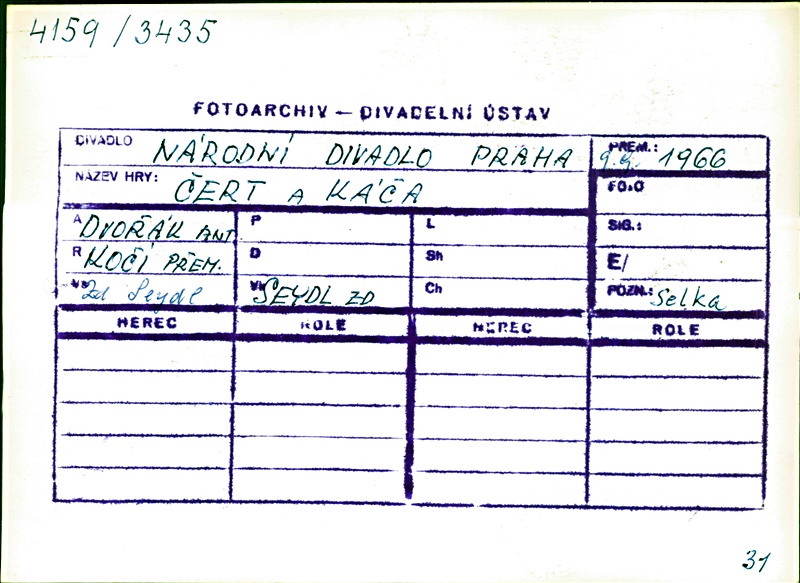 4159 / 3435
FOTOARCHIV – DIVADELNÍ ÚSTAV
DIVADLO NÁRODNÍ DIVADLO PRAHA PREM.: 9.9. 1966
NÁZEV HRY: ČERT A KÁČA FOTO
A DVOŘÁK ANT P L SIG.:
R KOČÍ PŘEM. D Sh E/
Zd Seydl SEYDL ZD Ch POZN.: Selka
HEREC ROLE HEREC ROLE
31